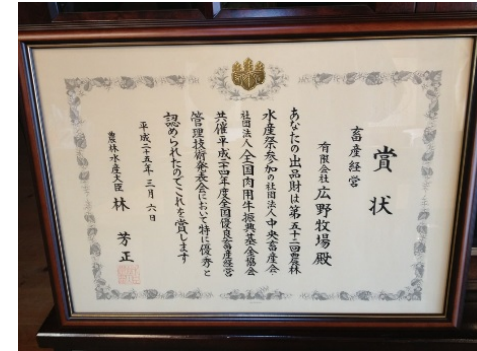 賞状
畜産経営
有限会社 広野牧場 殿
あなたの出品財は第五十二回農林
水産祭参加の社団法人中央畜産会・
社団法人全国肉用牛振興基金協会
共催平成二十四年度全国優良畜産経営
管理技術発表会において特に優秀と
認められたのでこれを賞します
平成二十五年三月六日
農林水産大臣 林 芳正